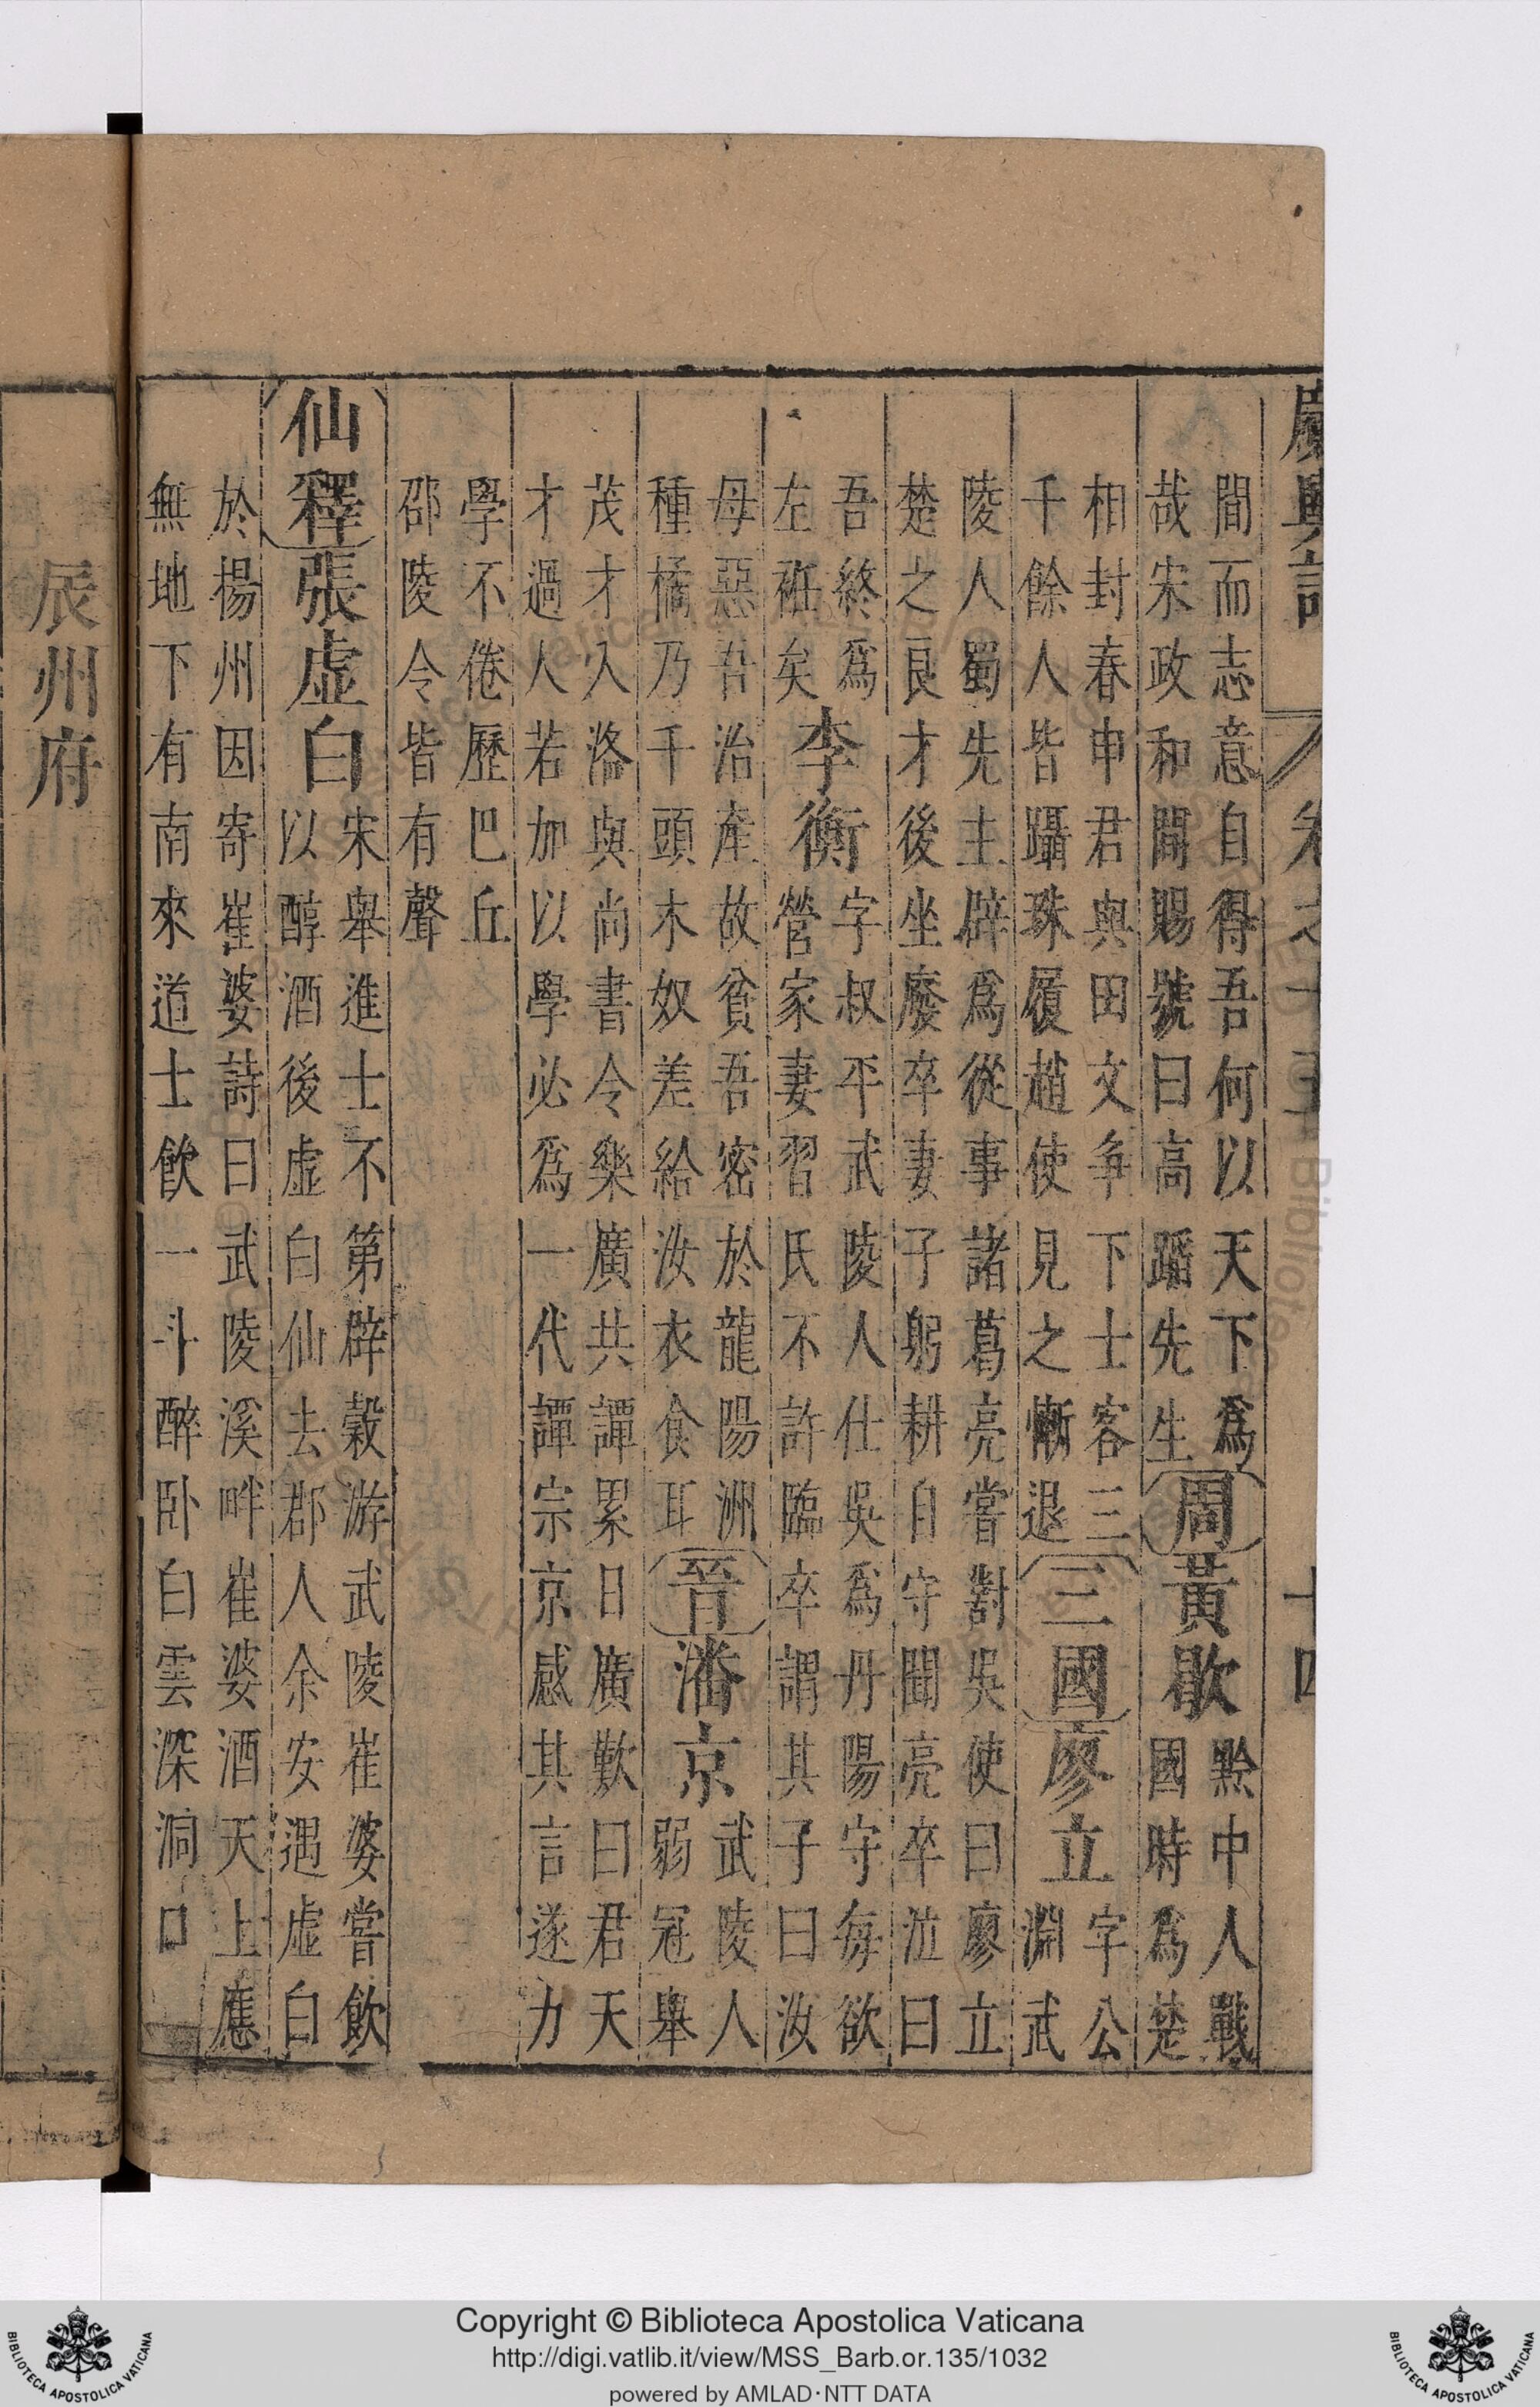 廣輿記 卷之十五 十四
間而志意自得吾何以天下爲
哉宋政和間賜號曰高蹈先生
周黃歇
黔中人戰
國時爲楚
相封春申君與田文爭下士客三
千餘人皆躡珠履趙使見之慚退
三國廖立
字公
淵武
陵人蜀先主辟爲從事諸葛亮嘗對吳使曰廖立
楚之良才後坐廢卒妻子躬耕自守聞亮卒泣曰
吾終爲
左袵矣
李衡
字叔平武陵人仕吳爲丹陽守每欲
營家妻習氏不許臨卒謂其子曰汝
母惡吾治產故貧吾密於龍陽洲
種橘乃千頭木奴差給汝衣食耳
晉潘京
武陵人
弱冠舉
茂才入洛與尚書令樂廣共譚累日廣歎曰君天
才過人若加以學必爲一代譚宗京感其言遂力
學不倦歷巴丘
邵陵令皆有聲
仙釋張虛白
宋舉進士不第辟穀游武陵崔婆嘗飲
以醇酒後虛白仙去郡人余安遇虛白
於揚州因寄崔婆詩曰武陵溪畔崔婆酒天上應
無地下有南來道士飲一斗醉臥白雲深洞口
辰州府
Copyright © Biblioteca Apostolica Vaticana
http://digi.vatlib.it/view/MSS_Barb.or.135/1032
powered by AMLAD·NTT DATA
BIBLIOTECA APOSTOLICA VATICANA
BIBLIOTECA APOSTOLICA VATICANA